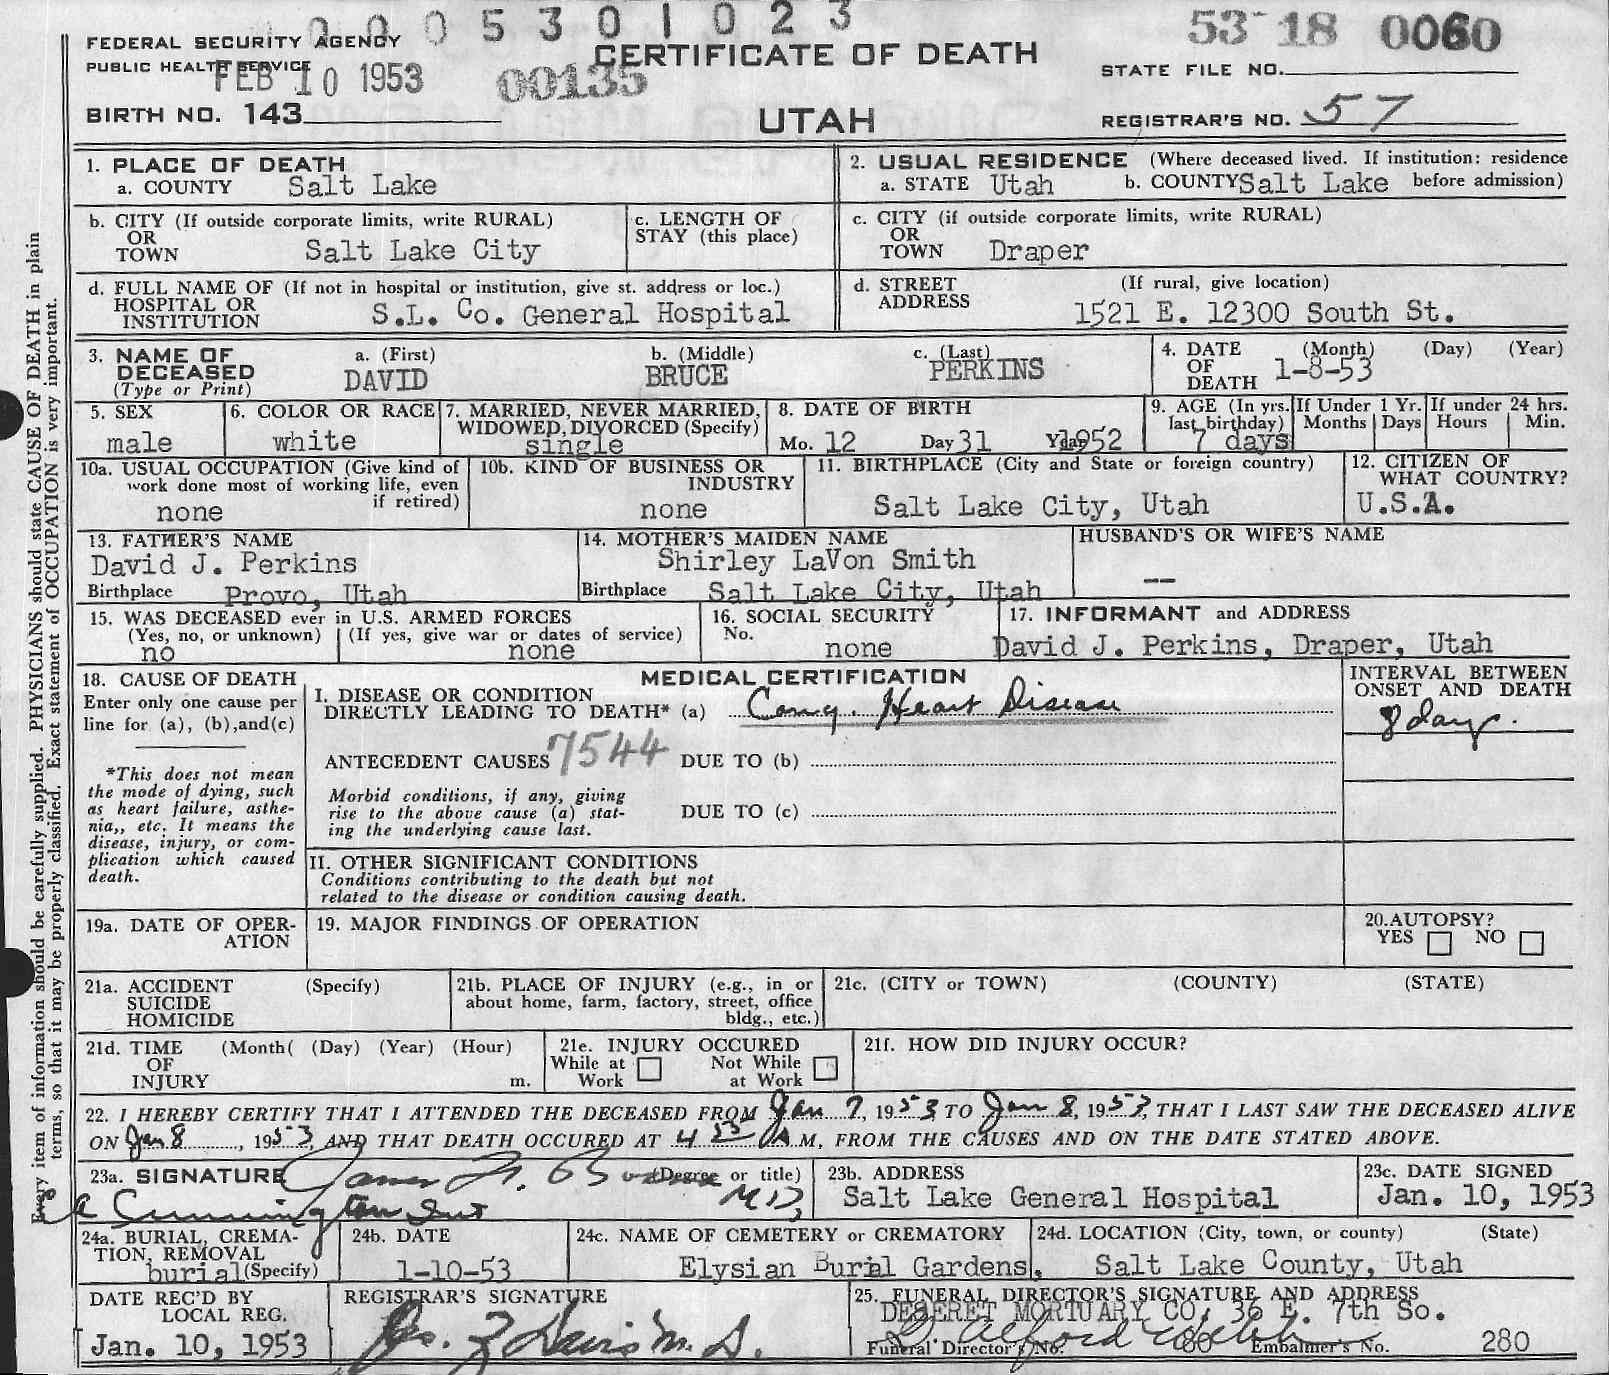 0 0 0 5 3 0 1 0 2 3
53-18 0060
FEDERAL SECURITY AGENCY
PUBLIC HEALTH SERVICE
FEB 10 1953
00135
CERTIFICATE OF DEATH
STATE FILE NO.
BIRTH NO. 143
UTAH
REGISTRAR'S NO. 57
1. PLACE OF DEATH
a. COUNTY Salt Lake
2. USUAL RESIDENCE (Where deceased lived. If institution: residence
a. STATE Utah b. COUNTY Salt Lake before admission)
b. CITY (If outside corporate limits, write RURAL)
OR
TOWN Salt Lake City
c. LENGTH OF
STAY (this place)
c. CITY (if outside corporate limits, write RURAL)
OR
TOWN Draper
d. FULL NAME OF (If not in hospital or institution, give st. address or loc.)
HOSPITAL OR
INSTITUTION S.L. Co. General Hospital
d. STREET (If rural, give location)
ADDRESS 1521 E. 12300 South St.
3. NAME OF
DECEASED
(Type or Print)
a. (First)
DAVID
b. (Middle)
BRUCE
c. (Last)
PERKINS
4. DATE (Month) (Day) (Year)
OF
DEATH 1-8-53
5. SEX
male
6. COLOR OR RACE
white
7. MARRIED, NEVER MARRIED,
WIDOWED, DIVORCED (Specify)
single
8. DATE OF BIRTH
Mo. 12 Day 31 Year 1952
9. AGE (In yrs.
last birthday)
7 days
If Under 1 Yr.
Months Days
If under 24 hrs.
Hours Min.
10a. USUAL OCCUPATION (Give kind of
work done most of working life, even
if retired)
none
10b. KIND OF BUSINESS OR
INDUSTRY
none
11. BIRTHPLACE (City and State or foreign country)
Salt Lake City, Utah
12. CITIZEN OF
WHAT COUNTRY?
U.S.A.
13. FATHER'S NAME
David J. Perkins
Birthplace Provo, Utah
14. MOTHER'S MAIDEN NAME
Shirley LaVon Smith
Birthplace Salt Lake City, Utah
HUSBAND'S OR WIFE'S NAME
--
15. WAS DECEASED ever in U.S. ARMED FORCES
(Yes, no, or unknown) (If yes, give war or dates of service)
no none
16. SOCIAL SECURITY
No.
none
17. INFORMANT and ADDRESS
David J. Perkins, Draper, Utah
18. CAUSE OF DEATH
Enter only one cause per
line for (a), (b),and(c)
*This does not mean
the mode of dying, such
as heart failure, asthe-
nia,, etc. It means the
disease, injury, or com-
plication which caused
death.
MEDICAL CERTIFICATION
I. DISEASE OR CONDITION
DIRECTLY LEADING TO DEATH* (a) Cong. Heart Disease
ANTECEDENT CAUSES 7544 DUE TO (b)
Morbid conditions, if any, giving
rise to the above cause (a) stat-
ing the underlying cause last.
DUE TO (c)
II. OTHER SIGNIFICANT CONDITIONS
Conditions contributing to the death but not
related to the disease or condition causing death.
INTERVAL BETWEEN
ONSET AND DEATH
8 days.
19a. DATE OF OPER-
ATION
19. MAJOR FINDINGS OF OPERATION
20.AUTOPSY?
YES NO
21a. ACCIDENT (Specify)
SUICIDE
HOMICIDE
21b. PLACE OF INJURY (e.g., in or
about home, farm, factory, street, office
bldg., etc.)
21c. (CITY or TOWN) (COUNTY) (STATE)
21d. TIME (Month( (Day) (Year) (Hour)
OF
INJURY m.
21e. INJURY OCCURED
While at Work
Not While at Work
21f. HOW DID INJURY OCCUR?
22. I HEREBY CERTIFY THAT I ATTENDED THE DECEASED FROM Jan 7, 1953 TO Jan 8, 1953, THAT I LAST SAW THE DECEASED ALIVE
ON Jan 8, 1953, AND THAT DEATH OCCURED AT 4 55 A M, FROM THE CAUSES AND ON THE DATE STATED ABOVE.
23a. SIGNATURE James (Degree or title)
Cunnington M.D.
23b. ADDRESS
Salt Lake General Hospital
23c. DATE SIGNED
Jan. 10, 1953
24a. BURIAL, CREMA-
TION, REMOVAL
burial (Specify)
24b. DATE
1-10-53
24c. NAME OF CEMETERY or CREMATORY
Elysian Burial Gardens,
24d. LOCATION (City, town, or county) (State)
Salt Lake County, Utah
DATE REC'D BY
LOCAL REG.
Jan. 10, 1953
REGISTRAR'S SIGNATURE
25. FUNERAL DIRECTOR'S SIGNATURE AND ADDRESS
DESERET MORTUARY CO, 36 E. 7th So.
Funeral Director's No. Embalmer's No. 280
Every item of information should be carefully supplied. PHYSICIANS should state CAUSE OF DEATH in plain
terms, so that it may be properly classified. Exact statement of OCCUPATION is very important.